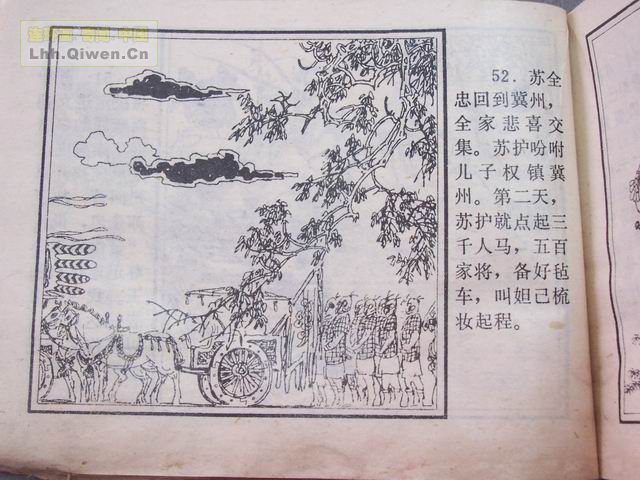 Lhh.Qiwen.Cn
52．苏全
忠回到冀州，
全家悲喜交
集。苏护吩咐
儿子权镇冀
州。第二天，
苏护就点起三
千人马，五百
家将，备好毡
车，叫妲己梳
妆起程。